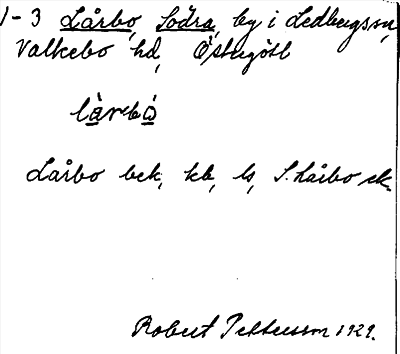 1-3 Lårbo, Södra, by i Ledbergs sn,
Valkebo hd, Östergötl
Lårbo bek, kb, ls, S. Lårbo ek.
Robert Pettersson 1929.